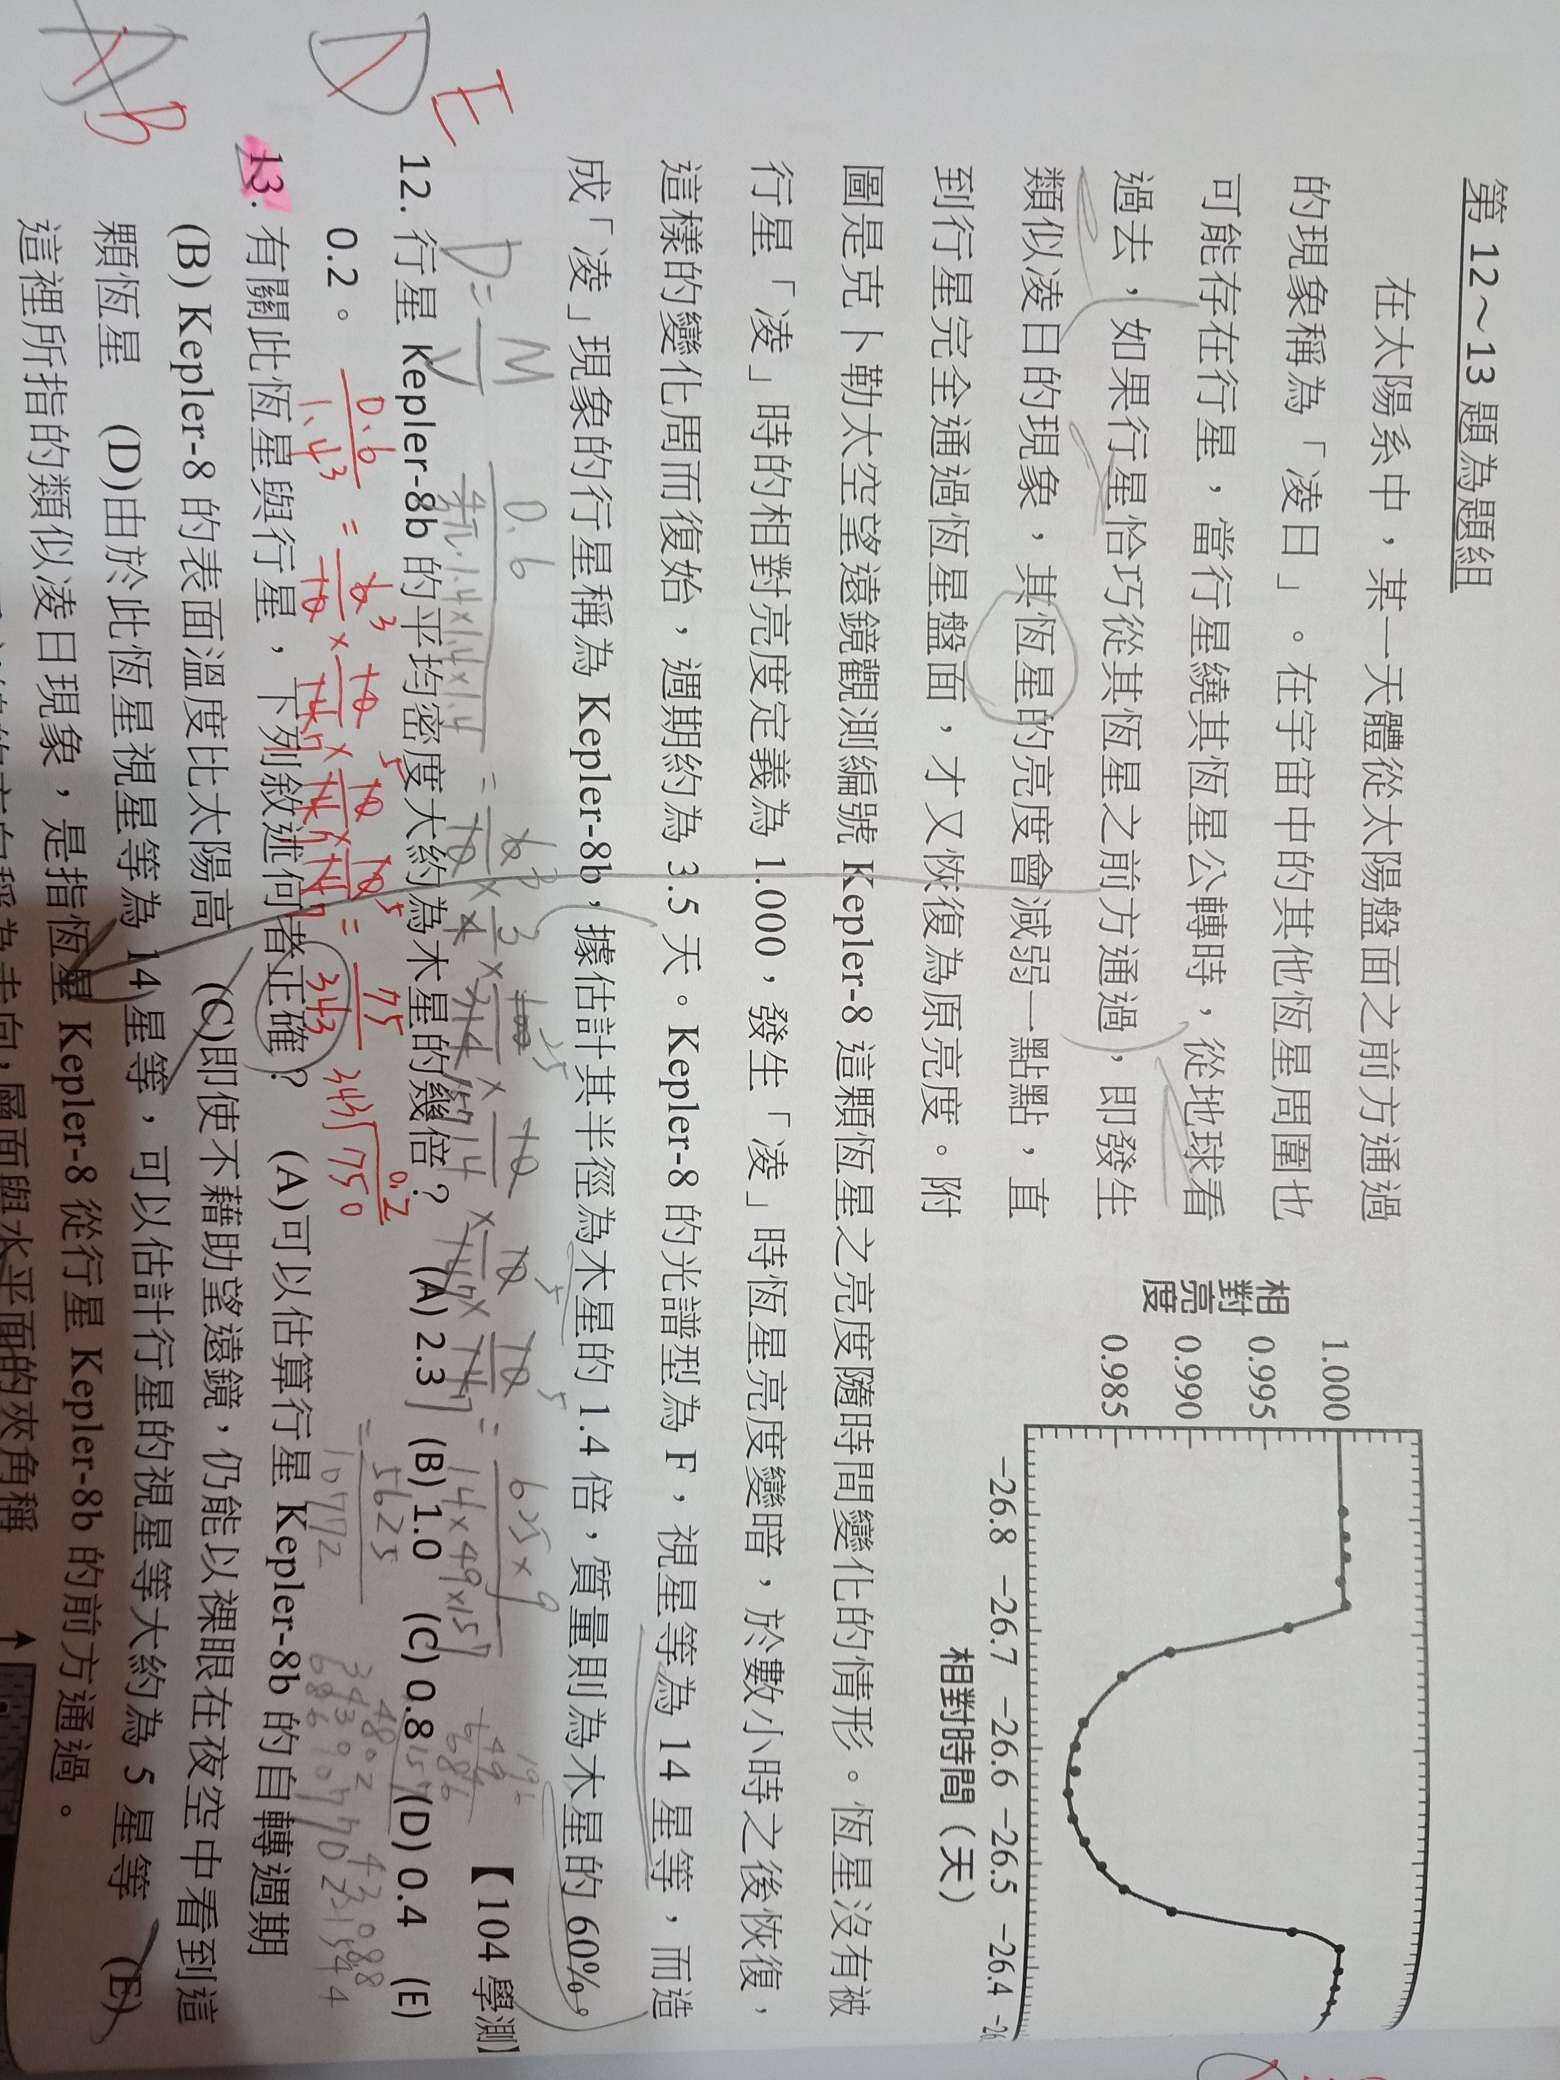 第 12～13 題為題組
在太陽系中，某一天體從太陽盤面之前方通過
的現象稱為「凌日」。在宇宙中的其他恆星周圍也
可能存在行星，當行星繞其恆星公轉時，從地球看
過去，如果行星恰巧從其恆星之前方通過，即發生
類似凌日的現象，其恆星的亮度會減弱一點點，直
到行星完全通過恆星盤面，才又恢復為原亮度。附
圖是克卜勒太空望遠鏡觀測編號 Kepler-8 這顆恆星之亮度隨時間變化的情形。恆星沒有被
行星「凌」時的相對亮度定義為 1.000，發生「凌」時恆星亮度變暗，於數小時之後恢復，
這樣的變化周而復始，週期約為 3.5 天。Kepler-8 的光譜型為 F，視星等為 14 星等，而造
成「凌」現象的行星稱為 Kepler-8b，據估計其半徑為木星的 1.4 倍，質量則為木星的 60%。
【104 學測】
相對亮度
1.000
0.995
0.990
0.985
-26.8 -26.7 -26.6 -26.5 -26.4 -26
相對時間（天）
E
D
12. 行星 Kepler-8b 的平均密度大約為木星的幾倍？ (A) 2.3 (B) 1.0 (C) 0.8 (D) 0.4 (E)
0.2。
D = M/V
0.6/1.4³
= 75/343
343 750
0.2
= 5625
10772
A B
13. 有關此恆星與行星，下列敘述何者正確？ (A)可以估算行星 Kepler-8b 的自轉週期
(B) Kepler-8 的表面溫度比太陽高 (C)即使不藉助望遠鏡，仍能以裸眼在夜空中看到這
顆恆星 (D)由於此恆星視星等為 14 星等，可以估計行星的視星等大約為 5 星等 (E)
這裡所指的類似凌日現象，是指恆星 Kepler-8 從行星 Kepler-8b 的前方通過。
層面與水平面的夾角稱